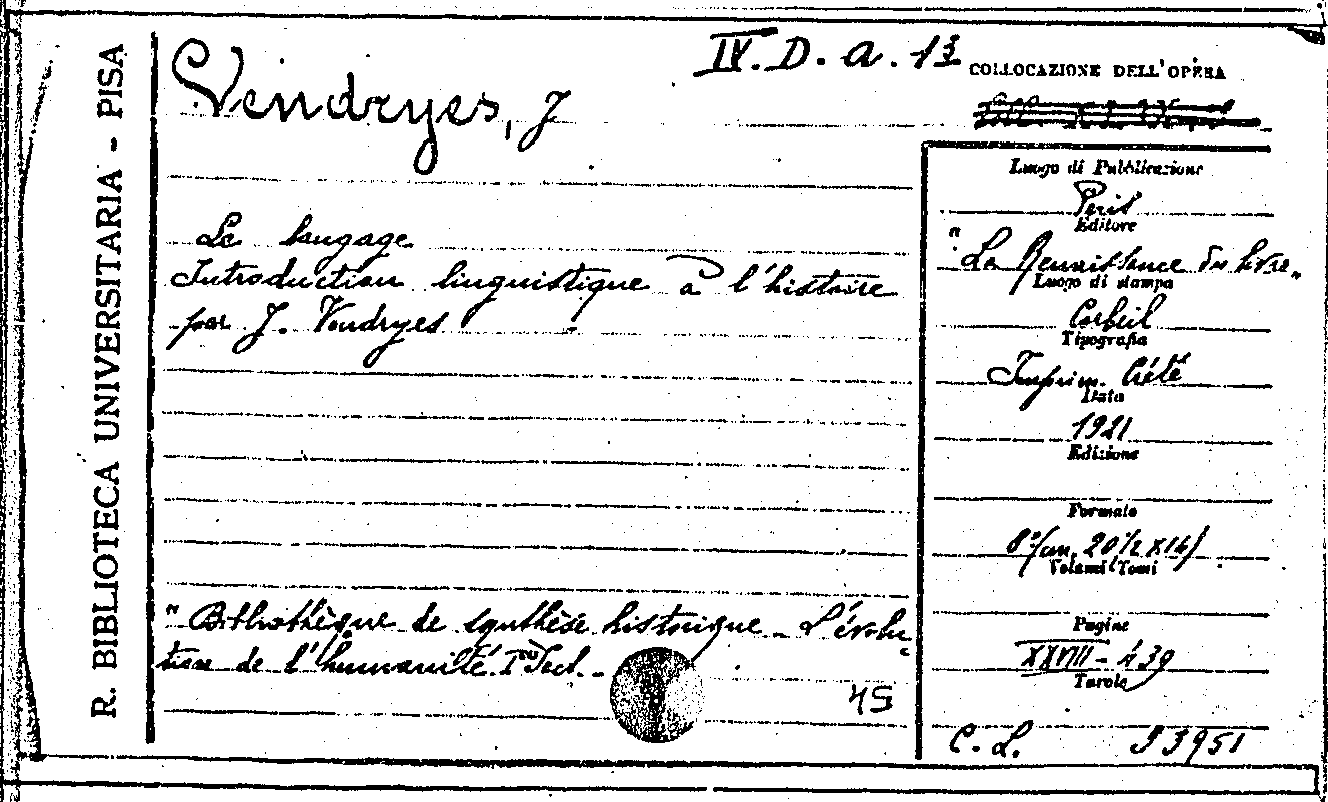 R. BIBLIOTECA UNIVERSITARIA - PISA
IV. D. a. 13
COLLOCAZIONE DELL'OPERA
Vendryes, J
Le langage
Introduction linguistique à l'histoire
par J. Vendryes
"Bibliothèque de synthèse historique - L'évolu-
tion de l'humanité. Sect. -
45
Luogo di Pubblicazione
Paris
Editore
"La Renaissance du livre"
Luogo di stampa
Corbeil
Tipografia
Imprim. Crété
Data
1921
Edizione
Formato
8° (cm. 20 1/2 x 14)
Volumi/Tomi
Pagine
XXVIII - 439
Tavole
C. L. 33951